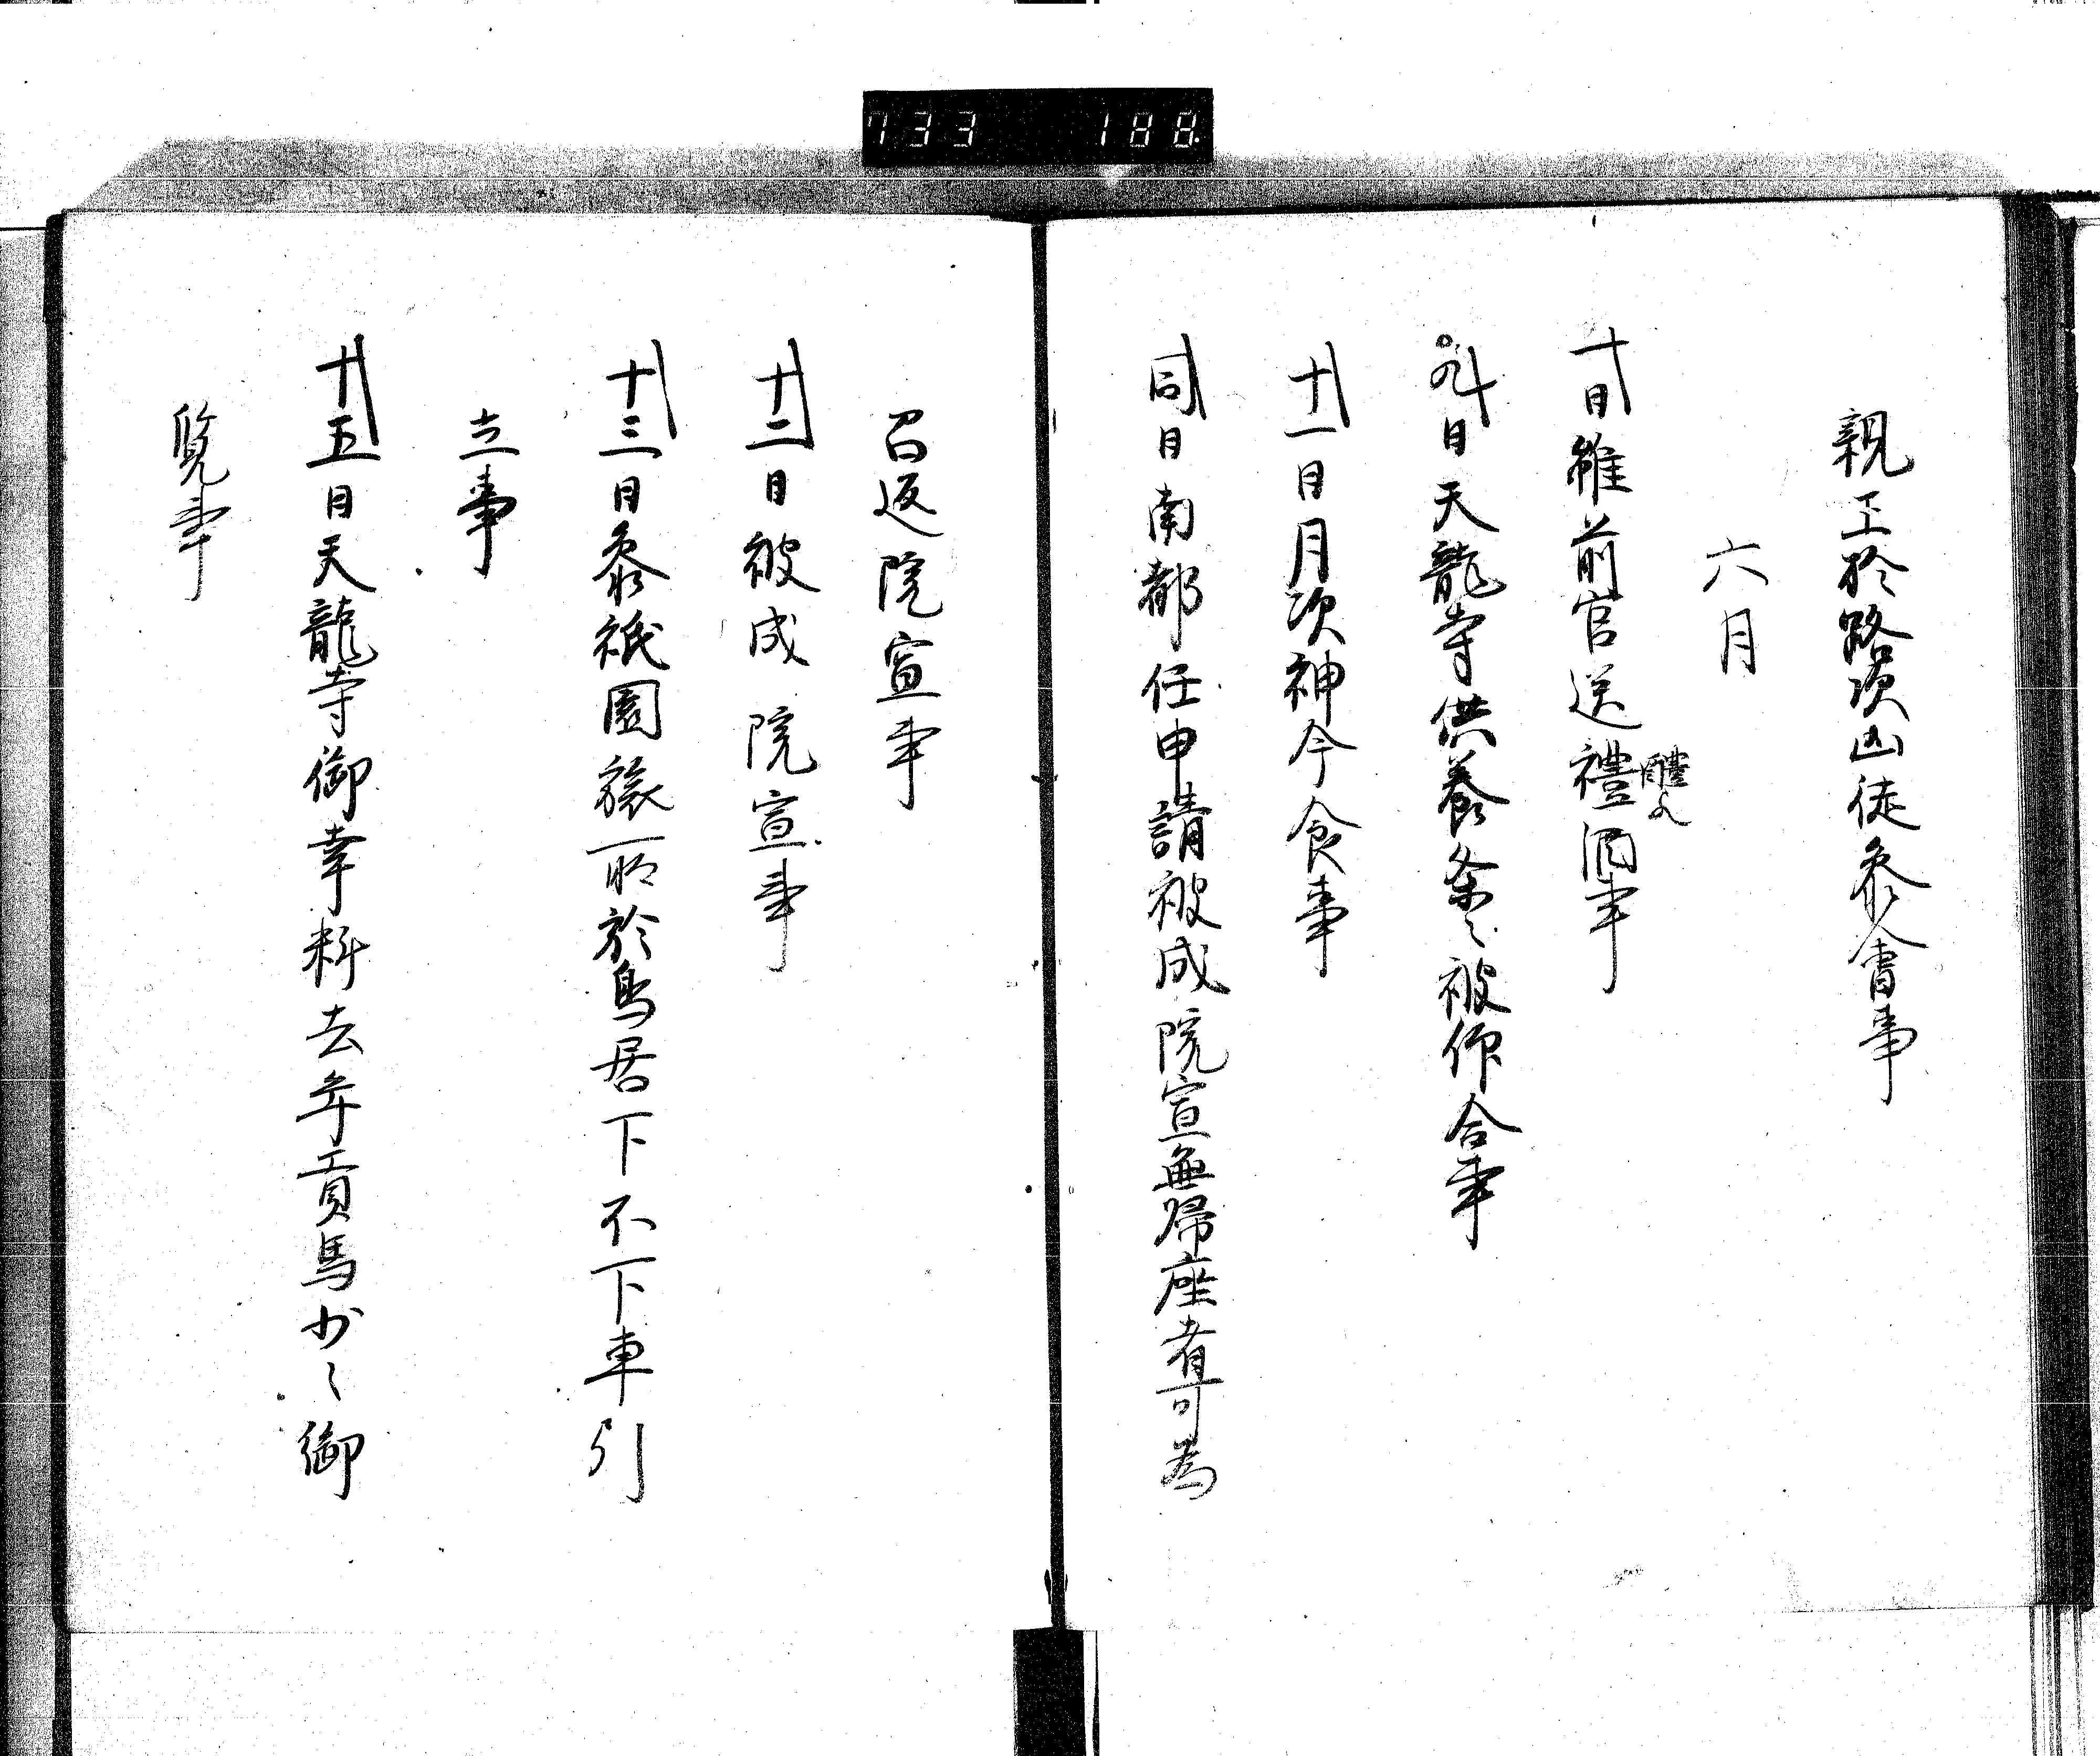 733 188
親王於路次山徒参会事
六月
一日雖前官送禮酒事
醴欤
九日天龍寺供養条々被仰合事
十一日月次神今食事
同日南都任申請被成院宣無帰座者可為
召返院宣事
十二日被成院宣事
十三日参祇園旅所於鳥居下不下車引
立事
十五日天龍寺御幸料去年貢馬少々御
覧事